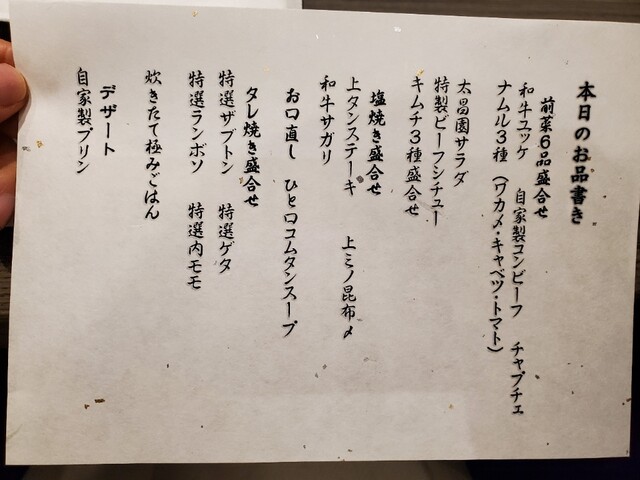 本日のお品書き
前菜6品盛合せ
和牛ユッケ 自家製コンビーフ チャプチェ
ナムル3種 (ワカメ・キャベツ・トマト)
太昌園サラダ
特製ビーフシチュー
キムチ3種盛合せ
塩焼き盛合せ
上タンステーキ 上ミノ昆布〆
和牛サガリ
お口直し ひと口コムタンスープ
タレ焼き盛合せ
特選ザブトン 特選ゲタ
特選ランボソ 特選内モモ
炊きたて極みごはん
デザート
自家製プリン